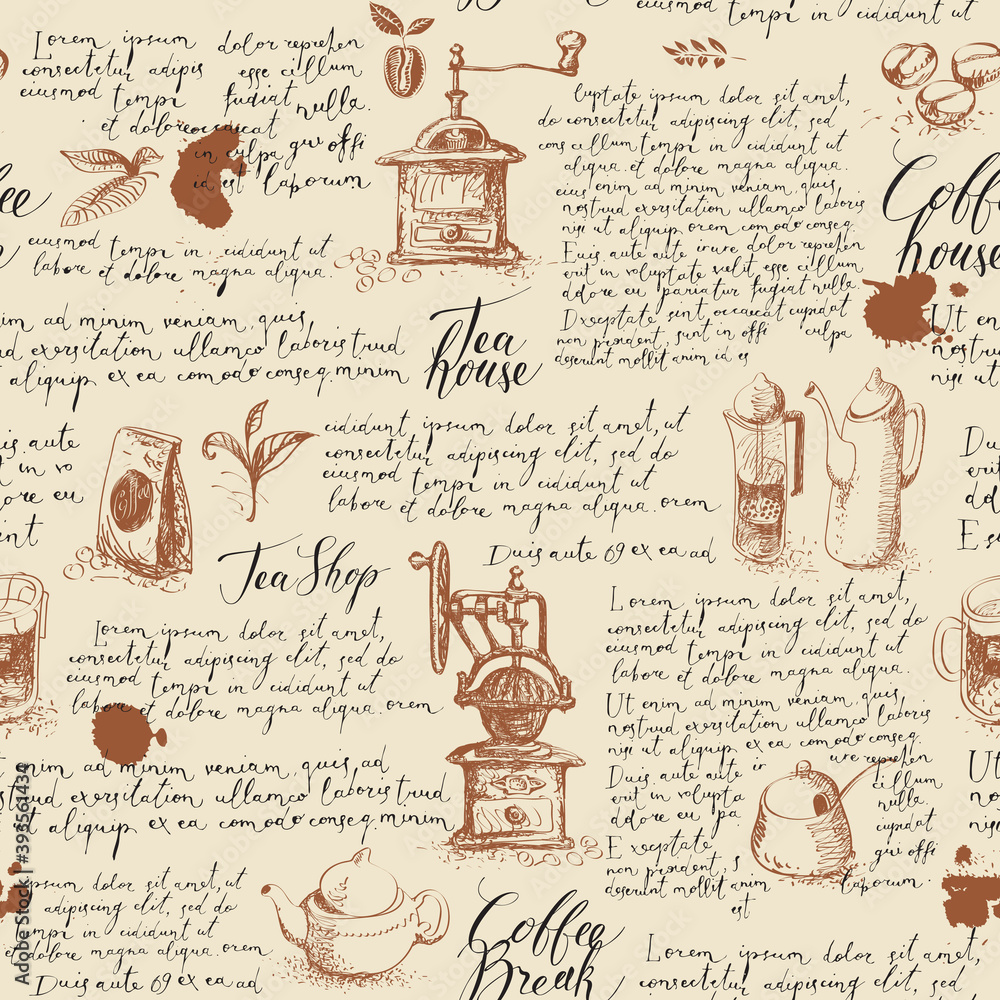 tempi in cididunt ut
et dolore magna aliqua.
Lorem ipsum
consectetur adipis
eiusmod tempi
et dolore occaecat
dolor reprehen
esse cillum
fugiat nulla.
in culpa qui offi
id est laborum
eiusmod tempi in cididunt ut
labore et dolore magna aliqua.
luptate ipsum dolor sit amet,
do consectetur adipiscing elit, sed do
cons cillum tempi in cididunt ut
aliqua. et dolore magna aliqua.
eius enim ad minim veniam, quis
nostrud exersitation ullamco laboris
nisi ut aliquip ex ea comodo conseq.
Euis aute aute irure dolor reprehen
erit in voluptate velit esse cillum
dolore eu pariatur fugiat nulla
Dxceptate sint occaecat cupidat
non proident, sunt in offi culpa
deserunt mollit anim id es
Coffee
house
Tea
house
enim ad minim veniam, quis
exersitation ullamco laboris tuud
aliquip ex ea comodo conseq. minim
Ut enim
nostrud
nisi ut
cididunt ipsum dolor sit amet, ut
consectetur adipiscing elit, sed do
eiusmod tempi in cididunt ut
labore et dolore magna aliqua. orem
Duis aute 69 ex ea ad
Coffee
is aute
t in vo
ore eu
int
Duis
erit
dolo
Tea Shop
Lorem ipsum dolor sit amet,
consectetur adipiscing elit, sed do
eiusmod tempi in cididunt ut
labore et dolore magna aliqua. orem
Lorem ipsum dolor sit amet,
consectetur adipiscing elit, sed do
eiusmod tempi in cididunt ut
labore et dolore magna aliqua.
Ut enim ad minim veniam, quis
nostrud exersitation ullamco laboris
nisi ut aliquip ex ea comodo conseq.
Duis aute aute ir ure reprehen
erit in volupta cillum
dolore eu pa nulla.
cupidat
Exceptate qui offi
non proident, s
deserunt mollit anim laborum.
est
enim ad minim veniam, quis ad
exersitation ullamco laboris tuud
aliquip ex ea comodo conseq. minim
ipsum dolor sit amet, ut
adipiscing elit, sed do
tempi in cididunt ut
et dolore magna aliqua. orem
Duis aute 69 ex ea ad
Coffee
Break
Lorem ipsum dolor sit amet,
consectetur adipiscing elit, sed do
eiusmod tempi in cididunt ut
Adobe Stock | #393561434